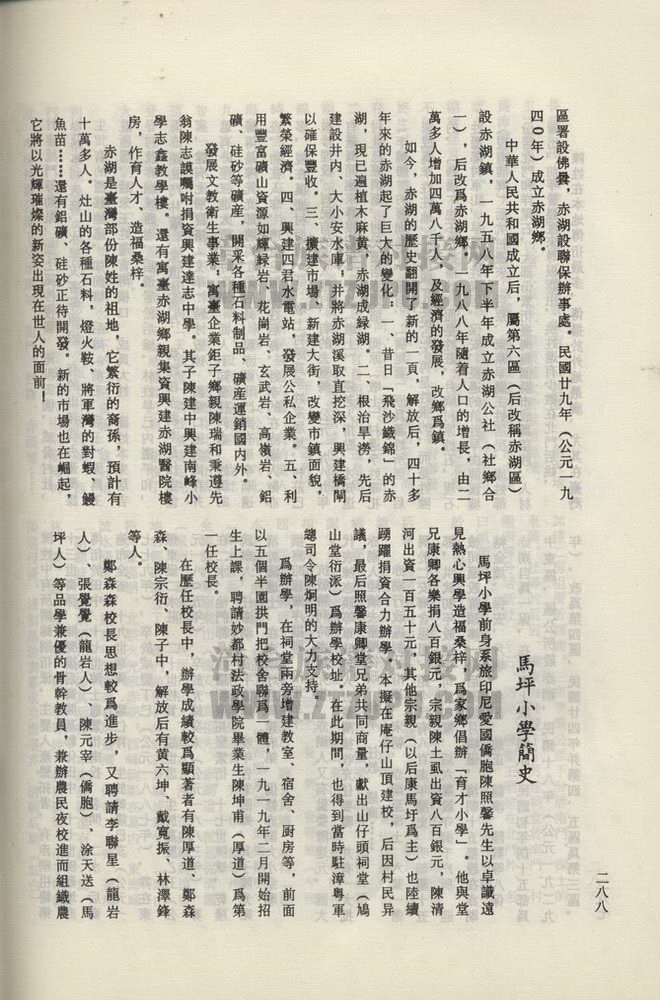 區署設佛曇，赤湖設聯保辦事處。民國廿九年（公元一九
四0年）成立赤湖鄉。
中華人民共和國成立后，屬第六區（后改稱赤湖區）
設赤湖鎮，一九五八年下半年成立赤湖公社（社鄉合
一），后改爲赤湖鄉。一九八八年隨着人口的增長，由二
萬多人增加四萬八千人，及經濟的發展，改鄉爲鎮。
如今，赤湖的歷史翻開了新的一頁，解放后，四十多
年來的赤湖起了巨大的變化：一、昔日「飛沙織錦」的赤
湖，現已遍植木麻黄，赤湖成緑湖。二、根治旱澇，先后
建設井内、大小安水庫；并將赤湖溪取直挖深，興建橋閘
以確保豐收。三、擴建市場、新建大街，改變市鎮面貌，
繁榮經濟。四、興建四君水電站，發展公私企業。五、利
用豐富礦山資源如輝緑岩、花崗岩、玄武岩、高嶺岩、鋁
礦、硅砂等礦産，開采各種石料制品、礦産運銷國内外。
發展文教衛生事業；寓臺企業鉅子鄉親陳瑞和秉遵先
翁陳志謨囑咐捐資興建達志中學。其子陳建中興建南峰小
學志鑫教學樓。還有寓臺赤湖鄉親集資興建赤湖醫院樓
房，作育人才、造福桑梓。
赤湖是臺灣部份陳姓的祖地，它繁衍的裔孫，預計有
十萬多人。灶山的各種石料，燈火鞍、將軍灣的對蝦、鰻
魚苗……還有鋁礦、硅砂正待開發。新的市場也在崛起，
它將以光輝璀燦的新姿出現在世人的面前！
馬坪小學簡史
馬坪小學前身系旅印尼愛國僑胞陳照馨先生以卓識遠
見熱心興學造福桑梓，爲家鄉倡辦「育才小學」。他與堂
兄康卿各樂捐八百銀元，宗親陳土虱出資八百銀元，陳清
河出資一百五十元，其他宗親（以后康馬圩爲主）也陸續
踴躍捐資合力辦學，本擬在庵仔山頂建校，后因村民异
議，最后照馨康卿堂兄弟共同商量，獻出山仔頭祠堂（鳩
山堂衍派）爲辦學校址。在此期間，也得到當時駐漳粤軍
總司令陳炯明的大力支持。
爲辦學，在祠堂兩旁增建教室、宿舍、厨房等，前面
以五個半園拱門把校舍聯爲一體，一九一九年二月開始招
生上課，聘請妙都村法政學院畢業生陳坤甫（厚道）爲第
一任校長。
在歷任校長中，辦學成績較爲顯著者有陳厚道、鄭森
森、陳宗衍、陳子中，解放后有黄六坤、戴寬振、林澤鋒
等人。
鄭森森校長思想較爲進步，又聘請李聯星（龍岩
人）、張覺覺（龍岩人）、陳元宰（僑胞）、涂天送（馬
坪人）等品學兼優的骨幹教員，兼辦農民夜校進而組織農
二八八